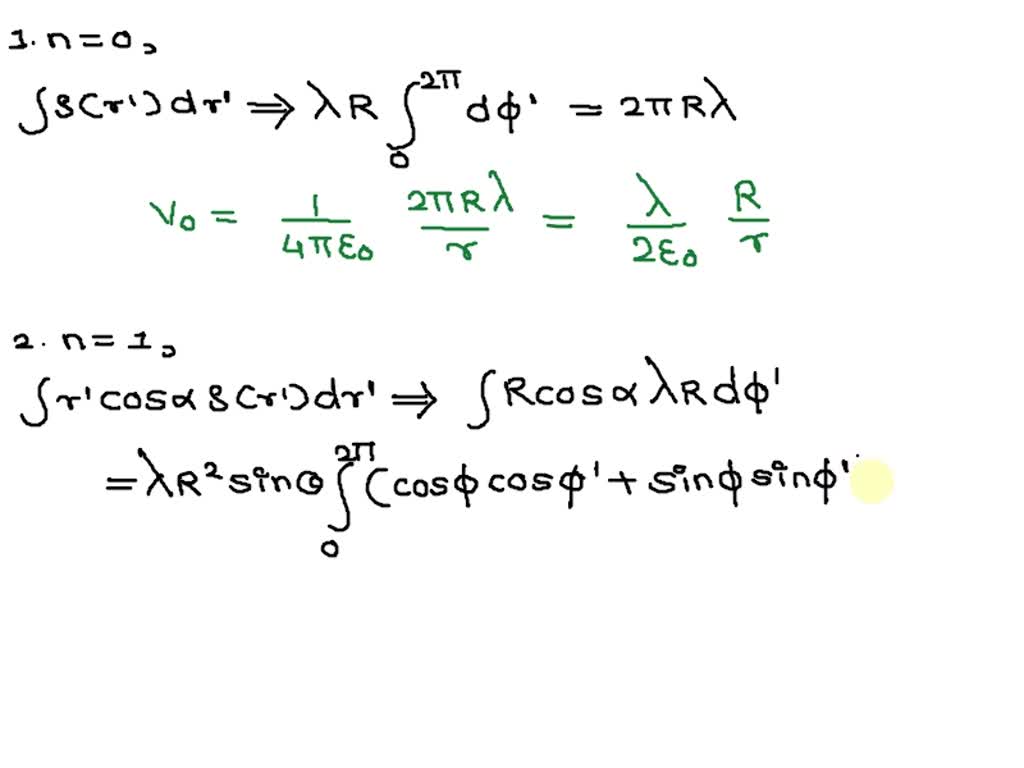 1. n = 0,
∫ρ(r')dr' ⇒ λR ∫₀^2π dϕ' = 2πRλ
V₀ = 1/4πε₀ 2πRλ/r = λ/2ε₀ R/r
2. n = 1,
∫r'cosα ρ(r')dr' ⇒ ∫Rcosα λRdϕ'
= λR² sinθ ∫₀^2π (cosϕ cosϕ' + sinϕ sinϕ'